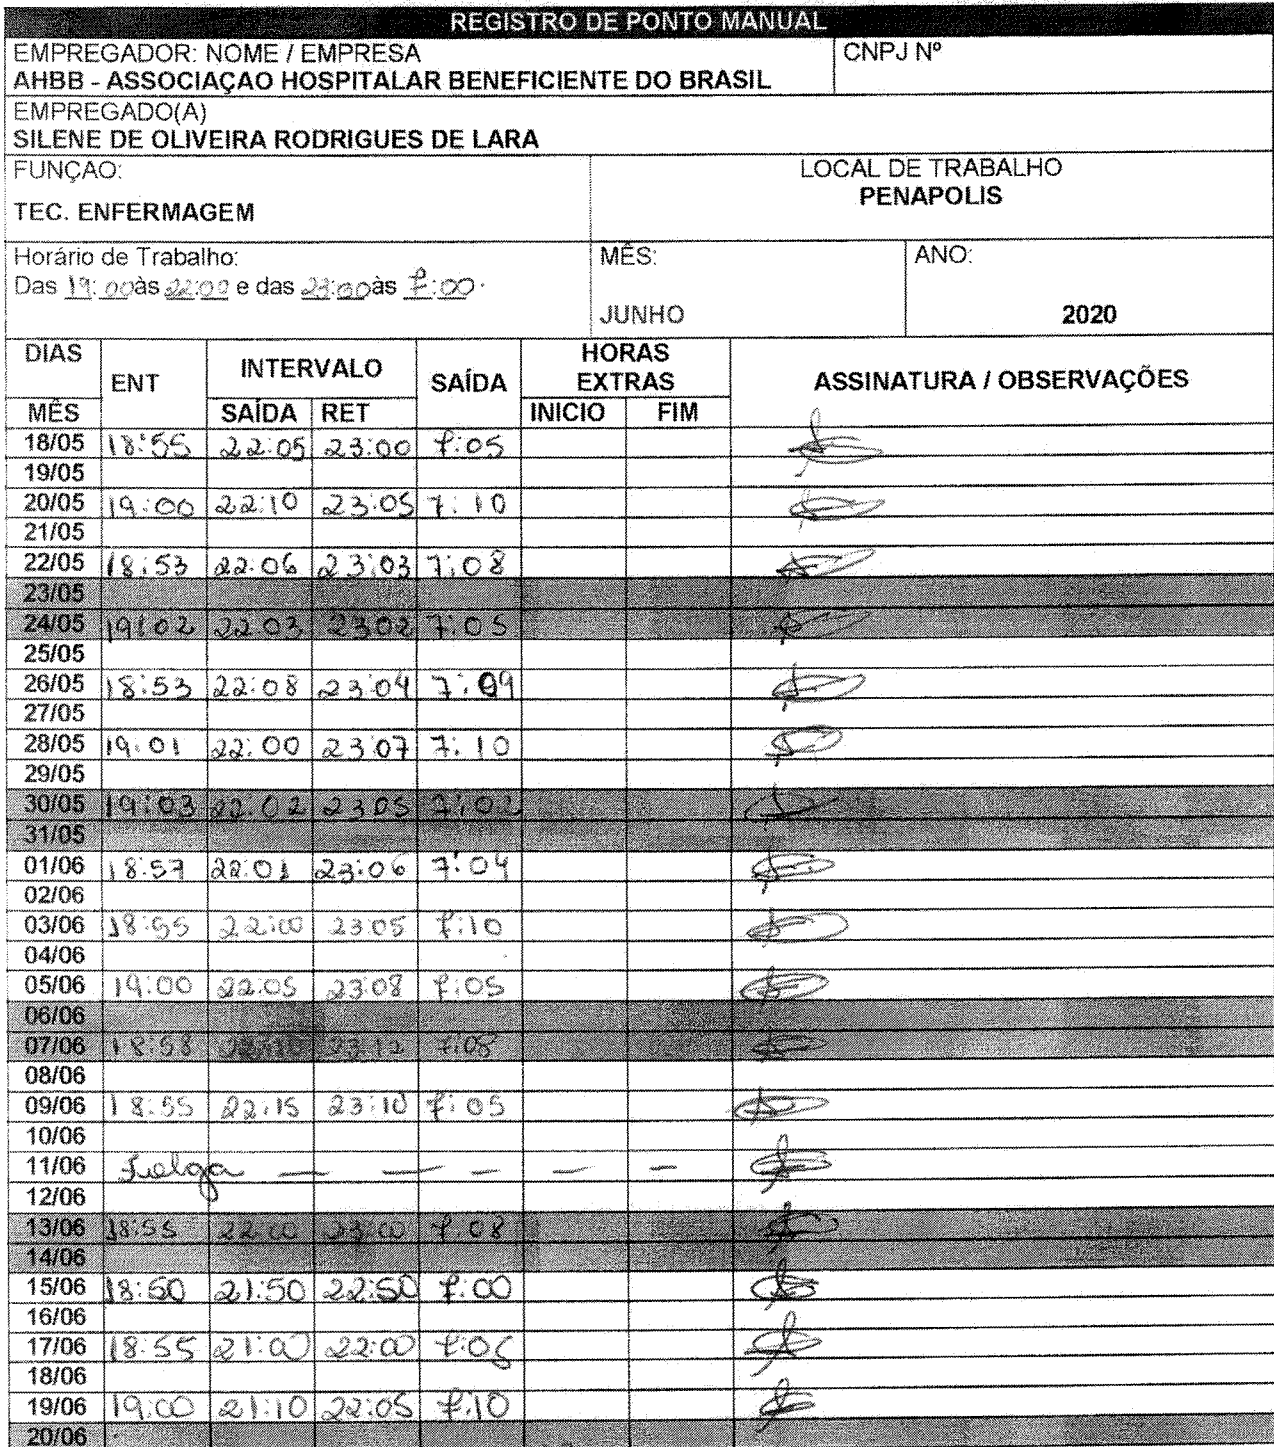 REGISTRO DE PONTO MANUAL
EMPREGADOR: NOME / EMPRESA CNPJ Nº
AHBB - ASSOCIAÇAO HOSPITALAR BENEFICIENTE DO BRASIL
EMPREGADO(A)
SILENE DE OLIVEIRA RODRIGUES DE LARA
FUNÇAO: LOCAL DE TRABALHO
PENAPOLIS
TEC. ENFERMAGEM
Horário de Trabalho: MÊS: ANO:
Das 19:00 às 22:00 e das 23:00 às 7:00.
JUNHO 2020
DIAS HORAS
ENT INTERVALO SAÍDA EXTRAS ASSINATURA / OBSERVAÇÕES
MÊS SAÍDA RET INICIO FIM
18/05 18:55 22:05 23:00 7:05
19/05
20/05 19:00 22:10 23:05 7:10
21/05
22/05 18:53 22:06 23:03 7:08
23/05
24/05 19:02 22:03 23:02 7:05
25/05
26/05 18:53 22:08 23:04 7:09
27/05
28/05 19:01 22:00 23:07 7:10
29/05
30/05 19:03 22:02 23:05 7:02
31/05
01/06 18:57 22:01 23:06 7:04
02/06
03/06 18:55 22:00 23:05 7:10
04/06
05/06 19:00 22:05 23:08 7:05
06/06
07/06 18:58 22:10 23:12 7:08
08/06
09/06 18:55 22:15 23:10 7:05
10/06
11/06 Folga — — — — —
12/06
13/06 18:55 22:00 23:00 7:08
14/06
15/06 18:50 21:50 22:50 7:00
16/06
17/06 18:55 21:00 22:00 7:05
18/06
19/06 19:00 21:10 22:05 7:10
20/06